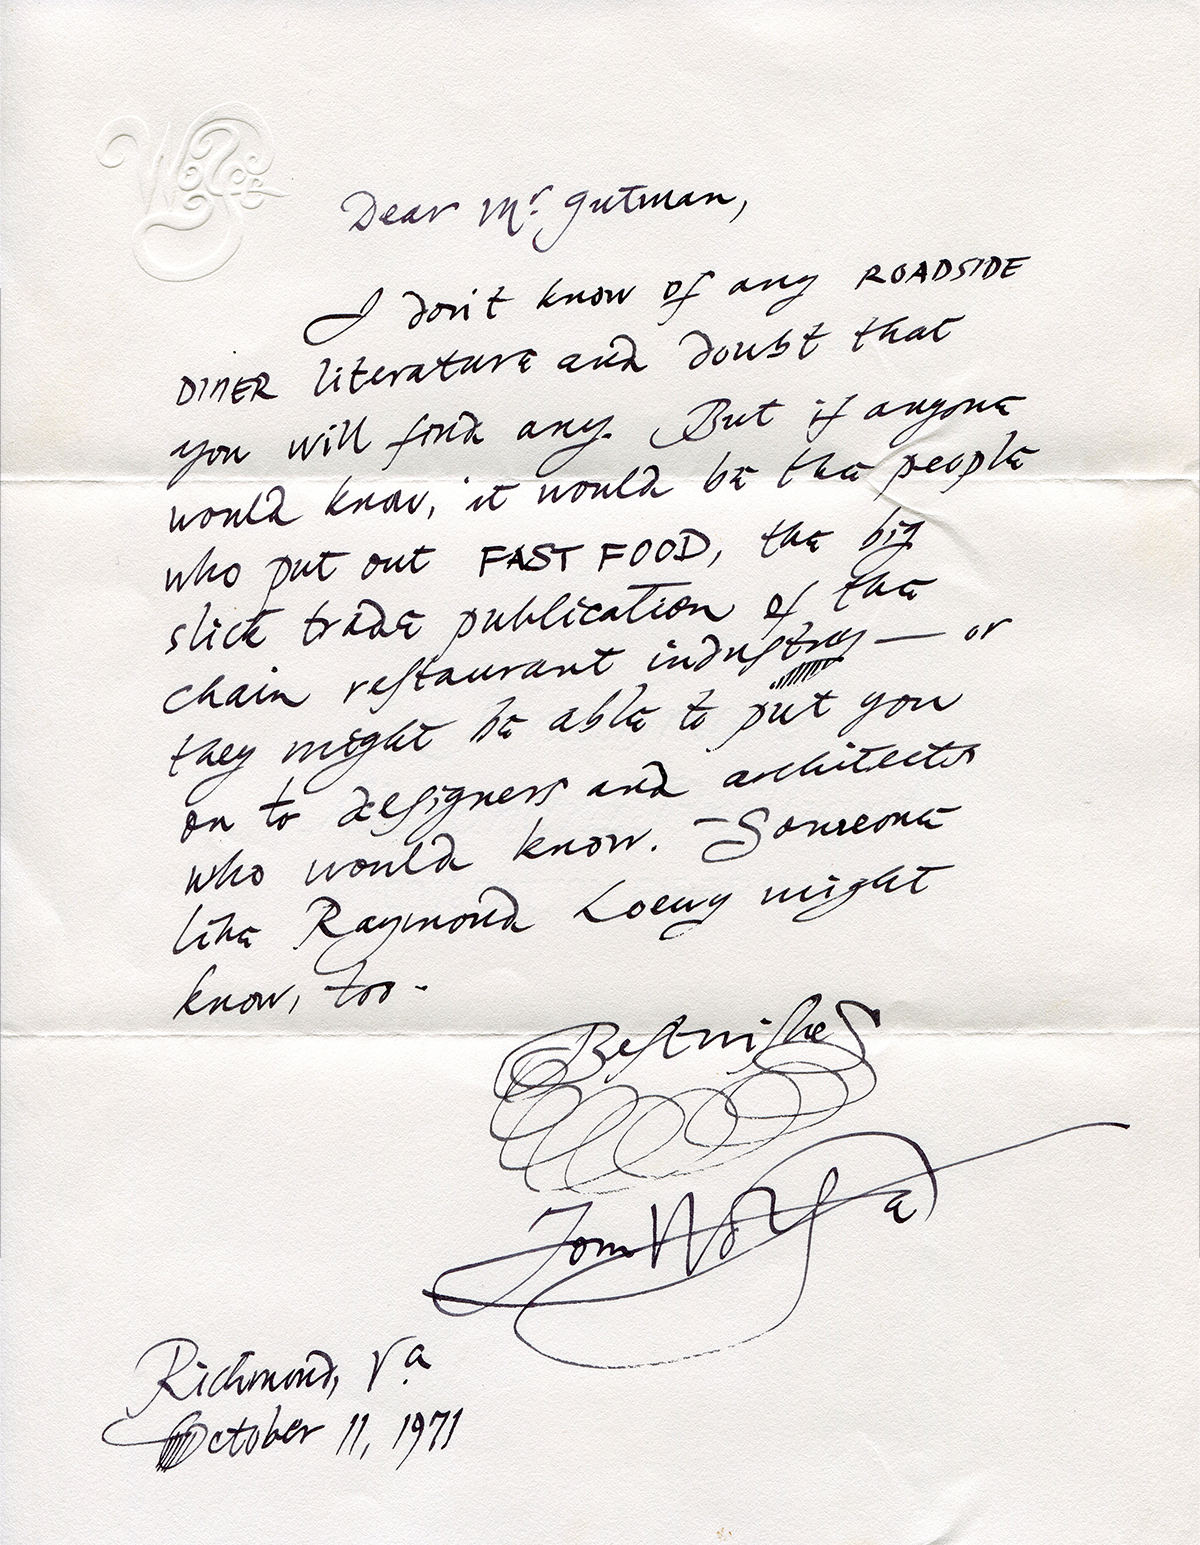 Wolfe
Dear Mr. Gutman,
I don't know of any ROADSIDE
DINER literature and doubt that
you will find any. But if anyone
would know, it would be the people
who put out FAST FOOD, the big
slick trade publication of the
chain restaurant industry — or
they might be able to put you
on to designers and architects
who would know. Someone
like Raymond Loewy might
know, too.
Best wishes
Tom Wolfe
Richmond, Va
October 11, 1971